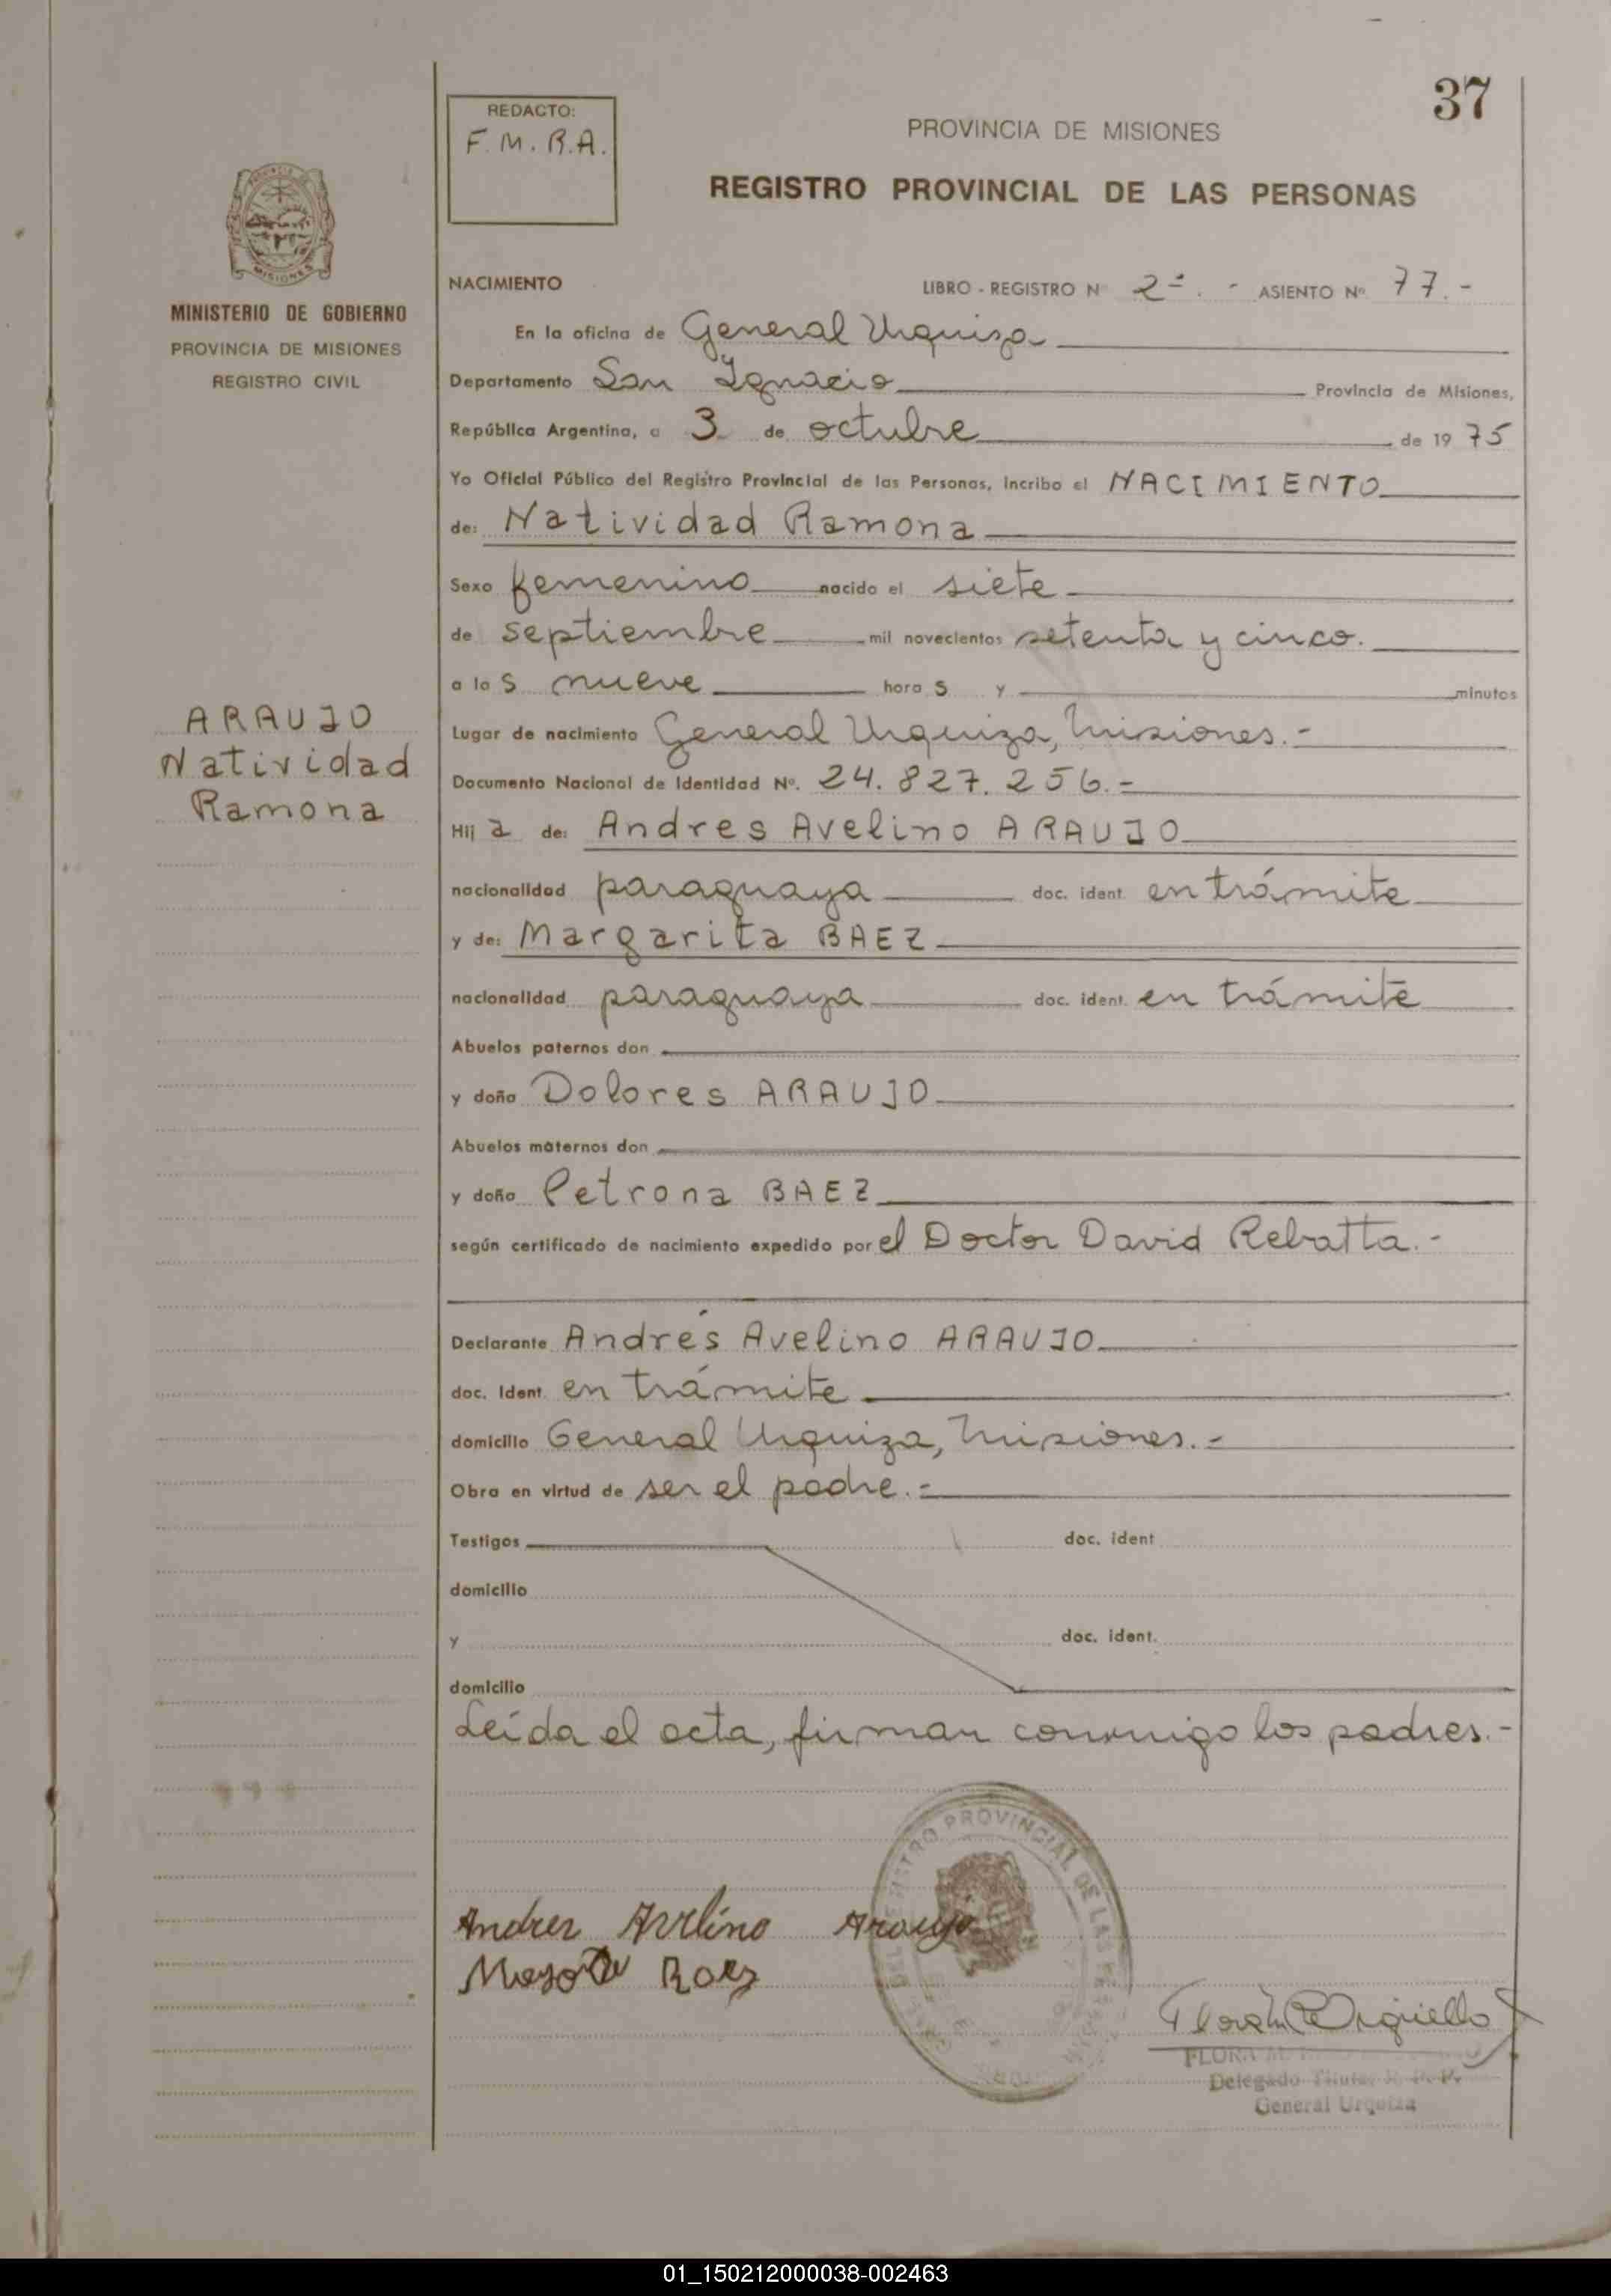 37
REDACTO:
F. M. R. A.
PROVINCIA DE MISIONES
REGISTRO PROVINCIAL DE LAS PERSONAS
MISIONES
MINISTERIO DE GOBIERNO
PROVINCIA DE MISIONES
REGISTRO CIVIL
NACIMIENTO
LIBRO - REGISTRO Nº 2º. - ASIENTO Nº 77.-
En la oficina de General Urquiza
Departamento San Ignacio Provincia de Misiones,
República Argentina, a 3 de octubre de 1975
Yo Oficial Público del Registro Provincial de las Personas, incribo el NACIMIENTO
de: Natividad Ramona
Sexo femenino nacido el siete
de septiembre mil novecientos setenta y cinco.
a las nueve horas y minutos
ARAUJO
Natividad
Ramona
Lugar de nacimiento General Urquiza, Misiones.-
Documento Nacional de Identidad Nº. 24.827.256.-
Hija de: Andres Avelino ARAUJO
nacionalidad paraguaya doc. ident. en trámite
y de: Margarita BAEZ
nacionalidad paraguaya doc. ident. en trámite
Abuelos paternos don
y doña Dolores ARAUJO
Abuelos maternos don
y doña Petrona BAEZ
según certificado de nacimiento expedido por el Doctor David Rebatta.-
Declarante Andrés Avelino ARAUJO
doc. ident. en trámite
domicilio General Urquiza, Misiones.-
Obra en virtud de ser el padre.-
Testigos doc. ident
domicilio
y doc. ident.
domicilio
Leída el acta, firman conmigo los padres.-
REGISTRO PROVINCIAL DE LAS
Andres Avelino Araujo
Baez
FLORA
Delegado Titular R. P. P.
General Urquiza
01_150212000038-002463